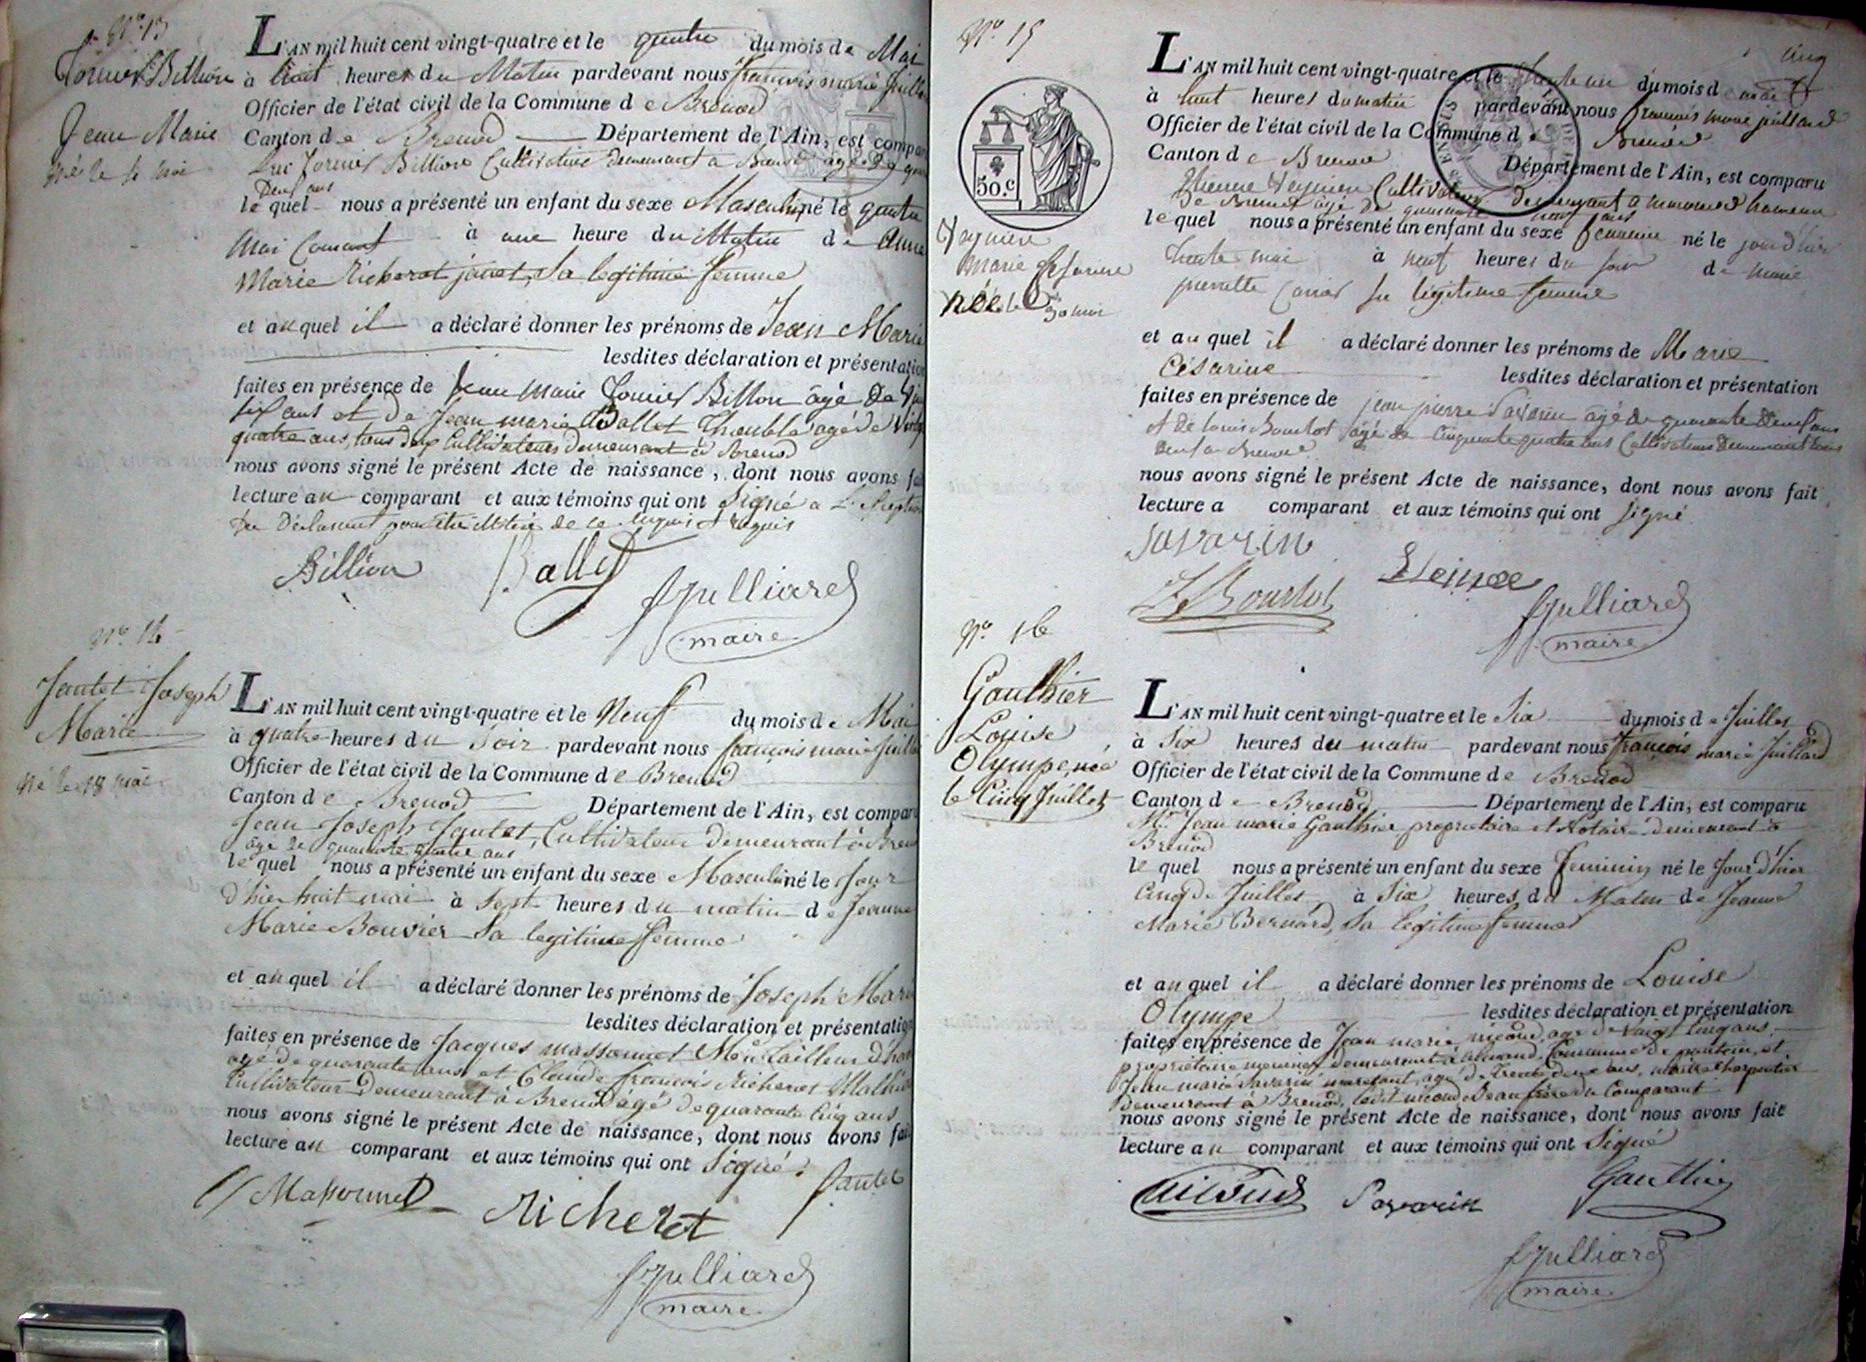 N° 13
Tornier Billion
Jean Marie
né le 4 mai
L'AN mil huit cent vingt-quatre et le quatre du mois de Mai
à huit heures du Matin pardevant nous françois marie Juill
Officier de l'état civil de la Commune de Brenod
Canton de Brenod Département de l'Ain, est compar
Luc Tornier Billion Cultivateur demeurant a Brenod agé de
Deux ans
le quel nous a présenté un enfant du sexe Masculin né le quatre
Mai Courant à une heure du Matin de Anne
Marie Richerot janet, Sa legitime femme
et auquel il a déclaré donner les prénoms de Jean Marie
lesdites déclaration et présentation
faites en présence de Jean Marie Tornier Billion âgé de
six ans et de Jean marie Ballet Thouble agé de Vingt
quatre ans, tous deux Cultivateurs demeurant à Brenod
nous avons signé le présent Acte de naissance, dont nous avons fai
lecture au comparant et aux témoins qui ont Signé a L'Exeption
Du Déclarant pour être illitéré de ce enquis et requis
Billion Ballet
Julliard
maire
N° 14
Jantet Joseph
Marie
né le 8 mai
L'AN mil huit cent vingt-quatre et le Neuf du mois de Mai
à quatre heures du Soir pardevant nous françois marie Juill
Officier de l'état civil de la Commune de Brenod
Canton de Brenod Département de l'Ain, est compar
Jean Joseph Jantet, Cultivateur demeurant à Bren
agé de quarante quatre ans
le quel nous a présenté un enfant du sexe Masculin né le Jour
d'hier huit mai à Sept heures du matin de Jeanne
Marie Bouvier Sa legitime femme
et auquel il a déclaré donner les prénoms de Joseph Marie
lesdites déclaration et présentation
faites en présence de Jacques massonnet Me Tailleur d'ha
agé de quarante ans et Claude françois Richerot Mathieu
Cultivateur Demeurant à Brenod agé de quarante Cinq ans
nous avons signé le présent Acte de naissance, dont nous avons fai
lecture au comparant et aux témoins qui ont Signé. Jantet
Massonnet Richerot
Julliard
maire
cinq
N° 15
50.c
Veyniere
Marie Césarine
née le 30 mai
L'AN mil huit cent vingt-quatre et le trente un du mois de mai
à huit heures du matin pardevant nous francois marie juillard
Officier de l'état civil de la Commune de Brenod
Canton de Brenod Département de l'Ain, est comparu
Etienne Cultivateur demeurant a hameau
De Brenod agé de quarante ans
le quel nous a présenté un enfant du sexe feminin né le jour d'hier
trente mai à neuf heures du soir de marie
pierrette Carrier sa légitime femme
et auquel il a déclaré donner les prénoms de Marie
Césarine lesdites déclaration et présentation
faites en présence de jean pierre Savarin agé de quarante Deux ans
et de louis Bourlot agé de Cinquante quatre ans Cultivateurs Demeurant tous
deux a Brenod
nous avons signé le présent Acte de naissance, dont nous avons fait
lecture a comparant et aux témoins qui ont signé
Savarin
L Bourlot
Julliard
maire
N° 16
Gauthier
Louise
Olympe, née
le Cinq Juillet
L'AN mil huit cent vingt-quatre et le Six du mois de Juillet
à Six heures du matin pardevant nous françois marie Juillard
Officier de l'état civil de la Commune de Brenod
Canton de Brenod Département de l'Ain, est comparu
Mr. Jean marie Gauthier proprietaire et Notaire demeurant à
Brenod
le quel nous a présenté un enfant du sexe Feminin né le Jour d'hier
Cinq de Juillet à Six heures du Matin de Jeanne
Marie Bernard, Sa legitime femme
et auquel il a déclaré donner les prénoms de Louise
Olympe lesdites déclaration et présentation
faites en présence de Jean marie nicoud, agé de Vingt Cinq ans,
propriétaire demeurant à Commune de et
Jean marie Savarin agé de Trente Deux ans, maitre charpentier
demeurant à Brenod, ledit nicoud Beau frère du Comparant
nous avons signé le présent Acte de naissance, dont nous avons fait
lecture au comparant et aux témoins qui ont Signé
Nicoud Savarin Gauthier
Julliard
maire